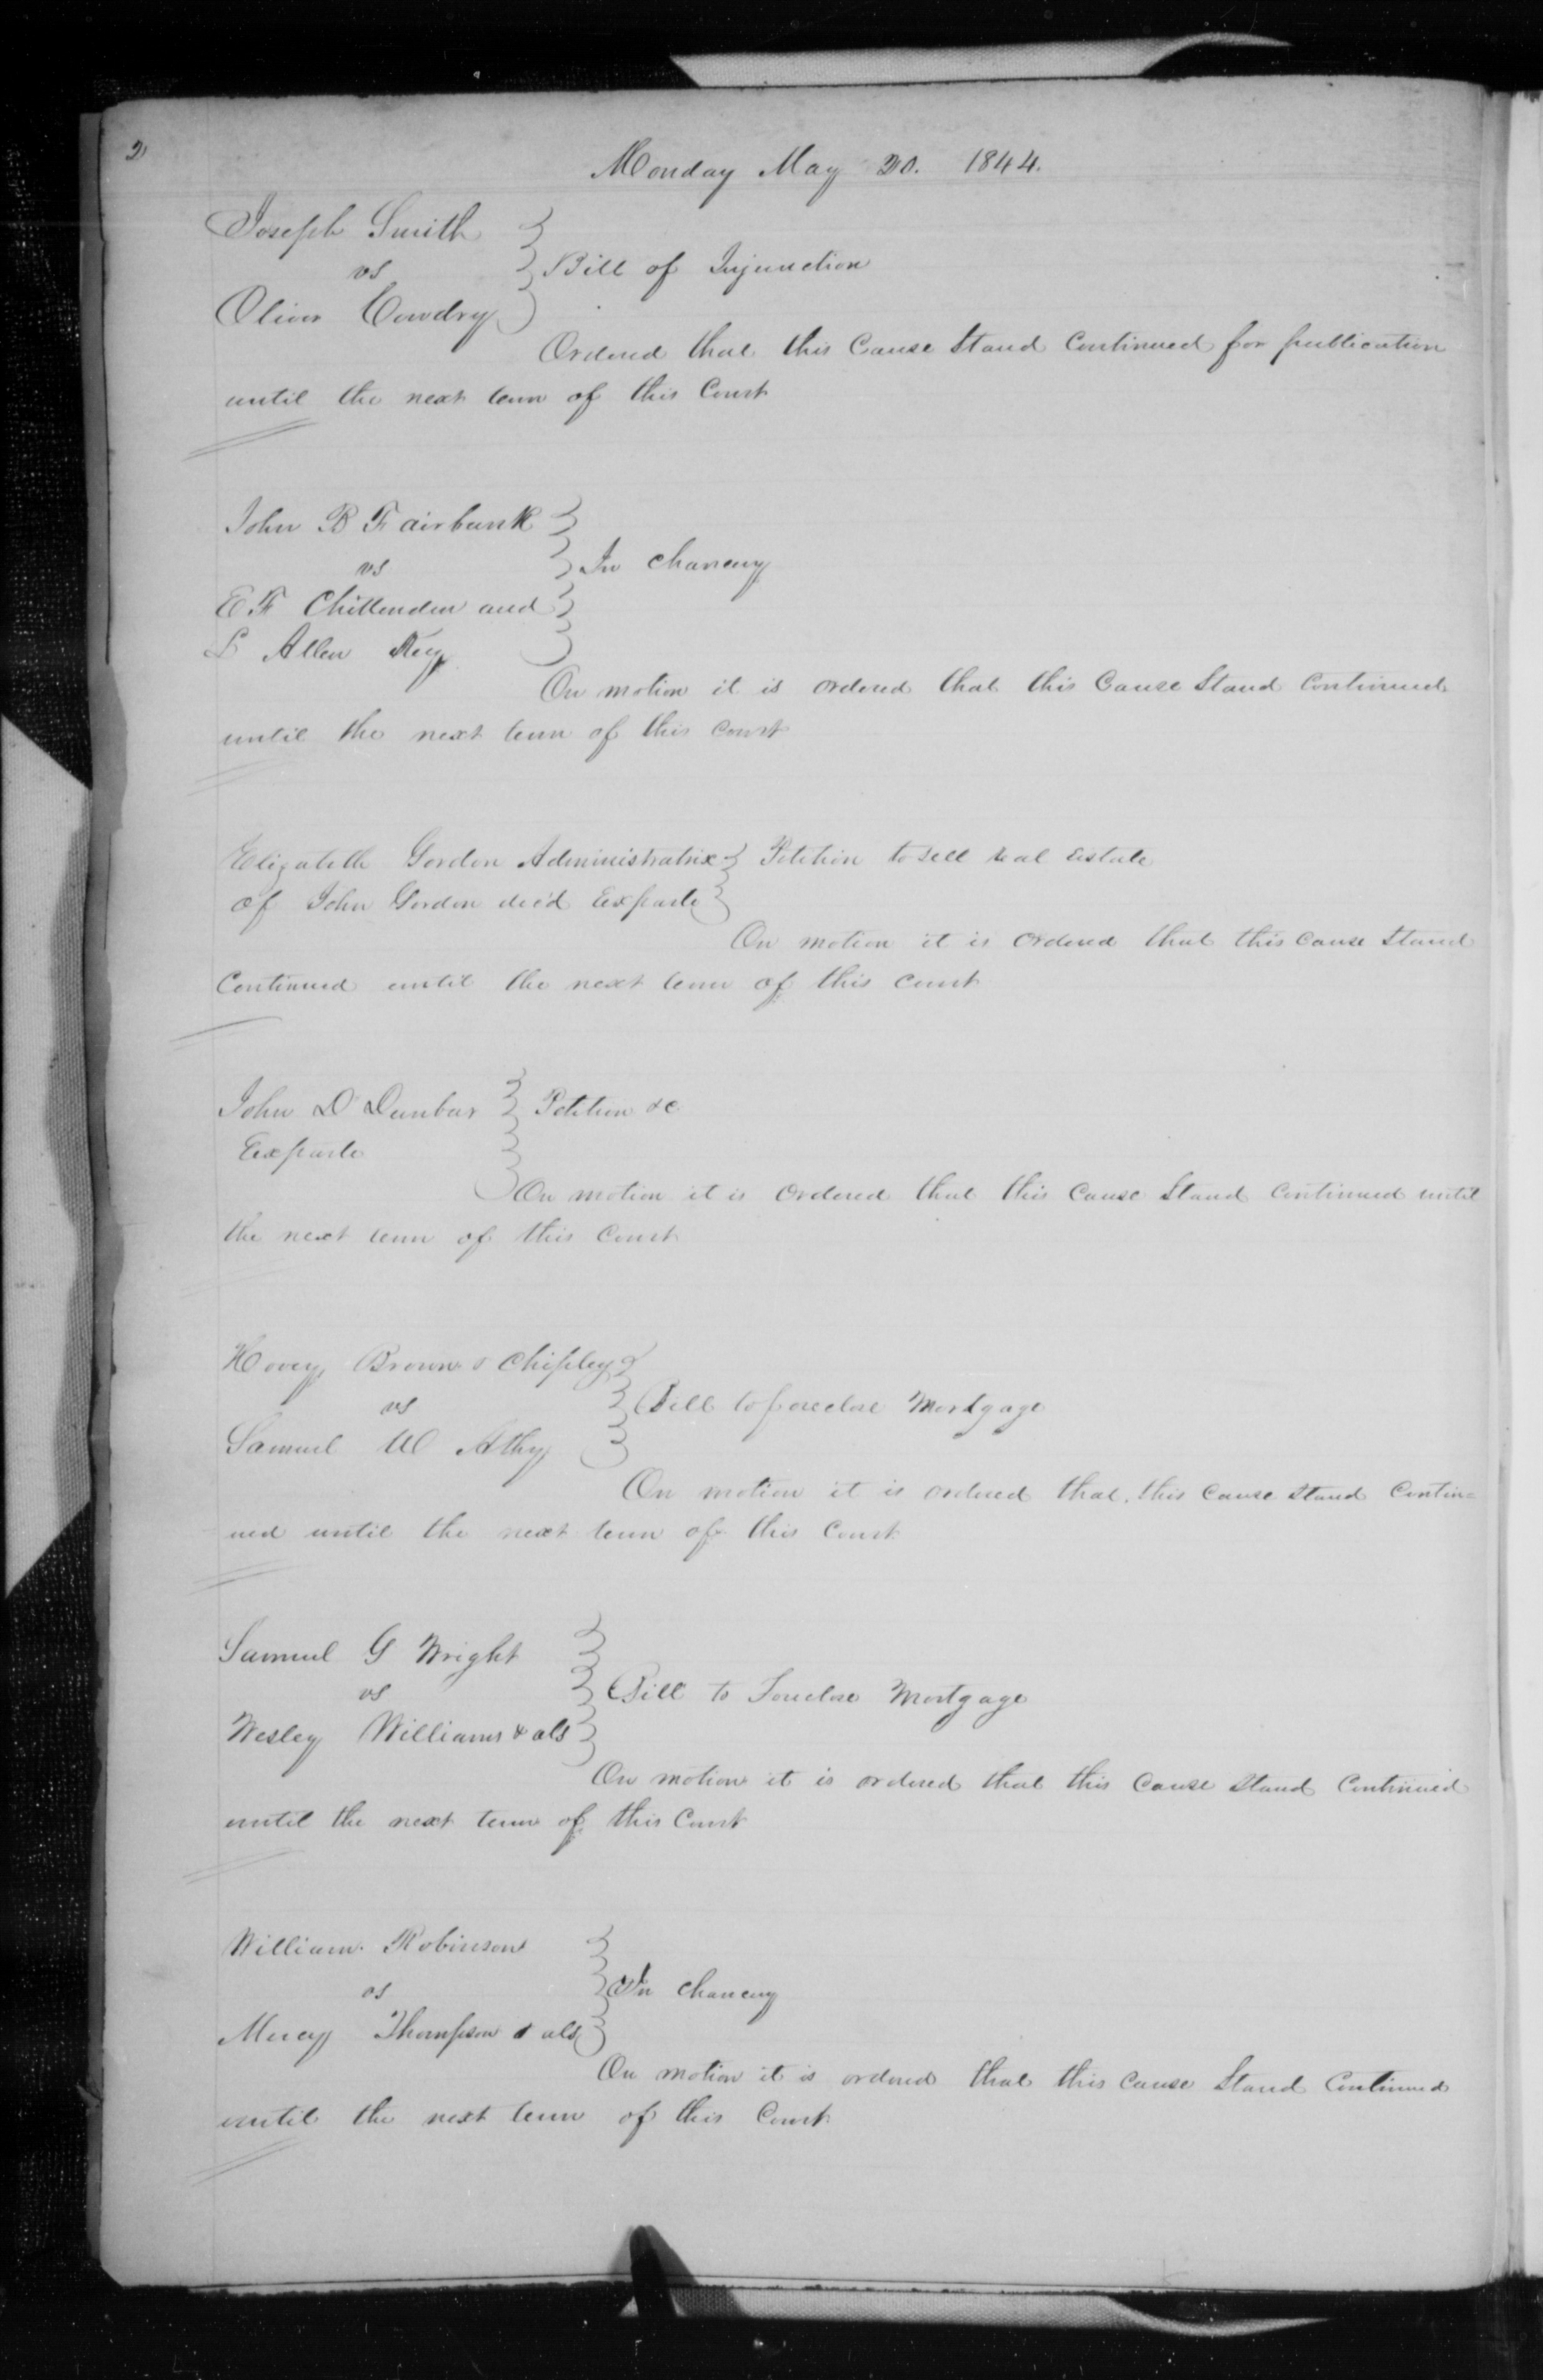 2
Monday May 20. 1844.
Joseph Smith
vs
Bill of Injunction
Oliver Cowdry
Ordered that this Cause Stand Continued for publication
until the next term of this Court
John B Fairbank
vs
In chancery
E F Chittenden and
L Allen Key
On motion it is ordered that this Cause Stand Continued
until the next term of this court
Elizabeth Gordon Administratrix Petition to sell real Estate
of John Gordon dec'd Exparte
On motion it is ordered that this cause stand
Continued until the next term of this court
John D Dunbar Petition &c
Exparte
On motion it is Ordered that this Cause Stand Continued until
the next term of this Court
Hovey Brown & Chipley
vs
Bill to foreclose Mortgage
Samuel W Athy
On motion it is ordered that this cause stand Contin=
ued until the next term of this Court
Samuel G Wright
vs
Bill to Foreclose Mortgage
Wesley Williams & als
On motion it is ordered that this Cause stand Continued
until the next term of this Court
William Robinson
vs
In chancery
Mercy Thompson & als
On motion it is ordered that this cause Stand Continued
until the next term of this Court